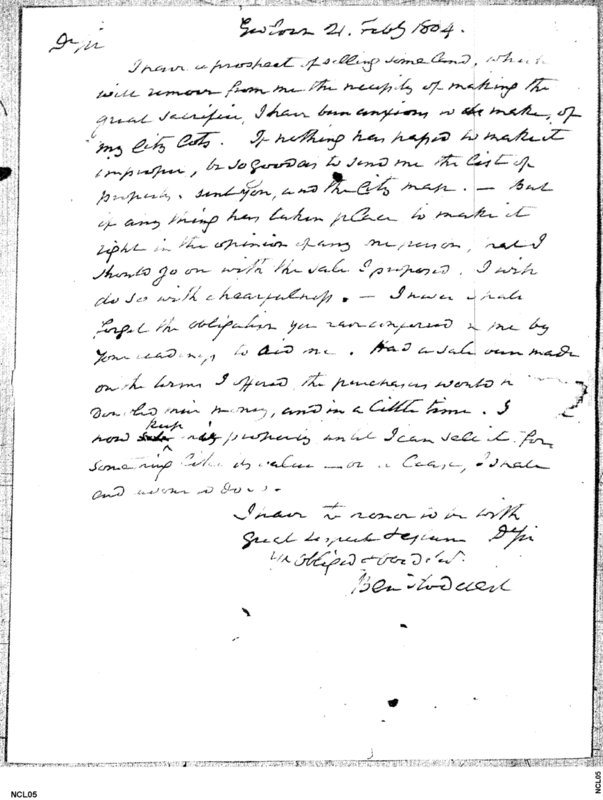 Geo Town 21. Feby 1804.
Dr Sir
I have a prospect of selling some land, which
will remove from me the necessity of making the
great sacrifice, I have been anxious to make, of
my City Lots. If nothing has happened to make it
improper, be so good as to send me the list of
property sent you, and the City map. — But
if any thing has taken place to make it
right in the opinion of any one person, that I
should go on with the sale I proposed, I will
do so with chearfulness. — I never shall
forget the obligation you have conferred on me by
your readiness to aid me. Had a sale been made
on the terms I offered the purchasers would
doubled their money, and in a little time. I
now keep my property until I can sell it for
something like its value — or at least, I shall
endeavour to do so.
I have the honor to be with
great respect & esteem Dr Sir
yr obliged & obed Sert.
Ben Stoddert
NCL05
NCL05